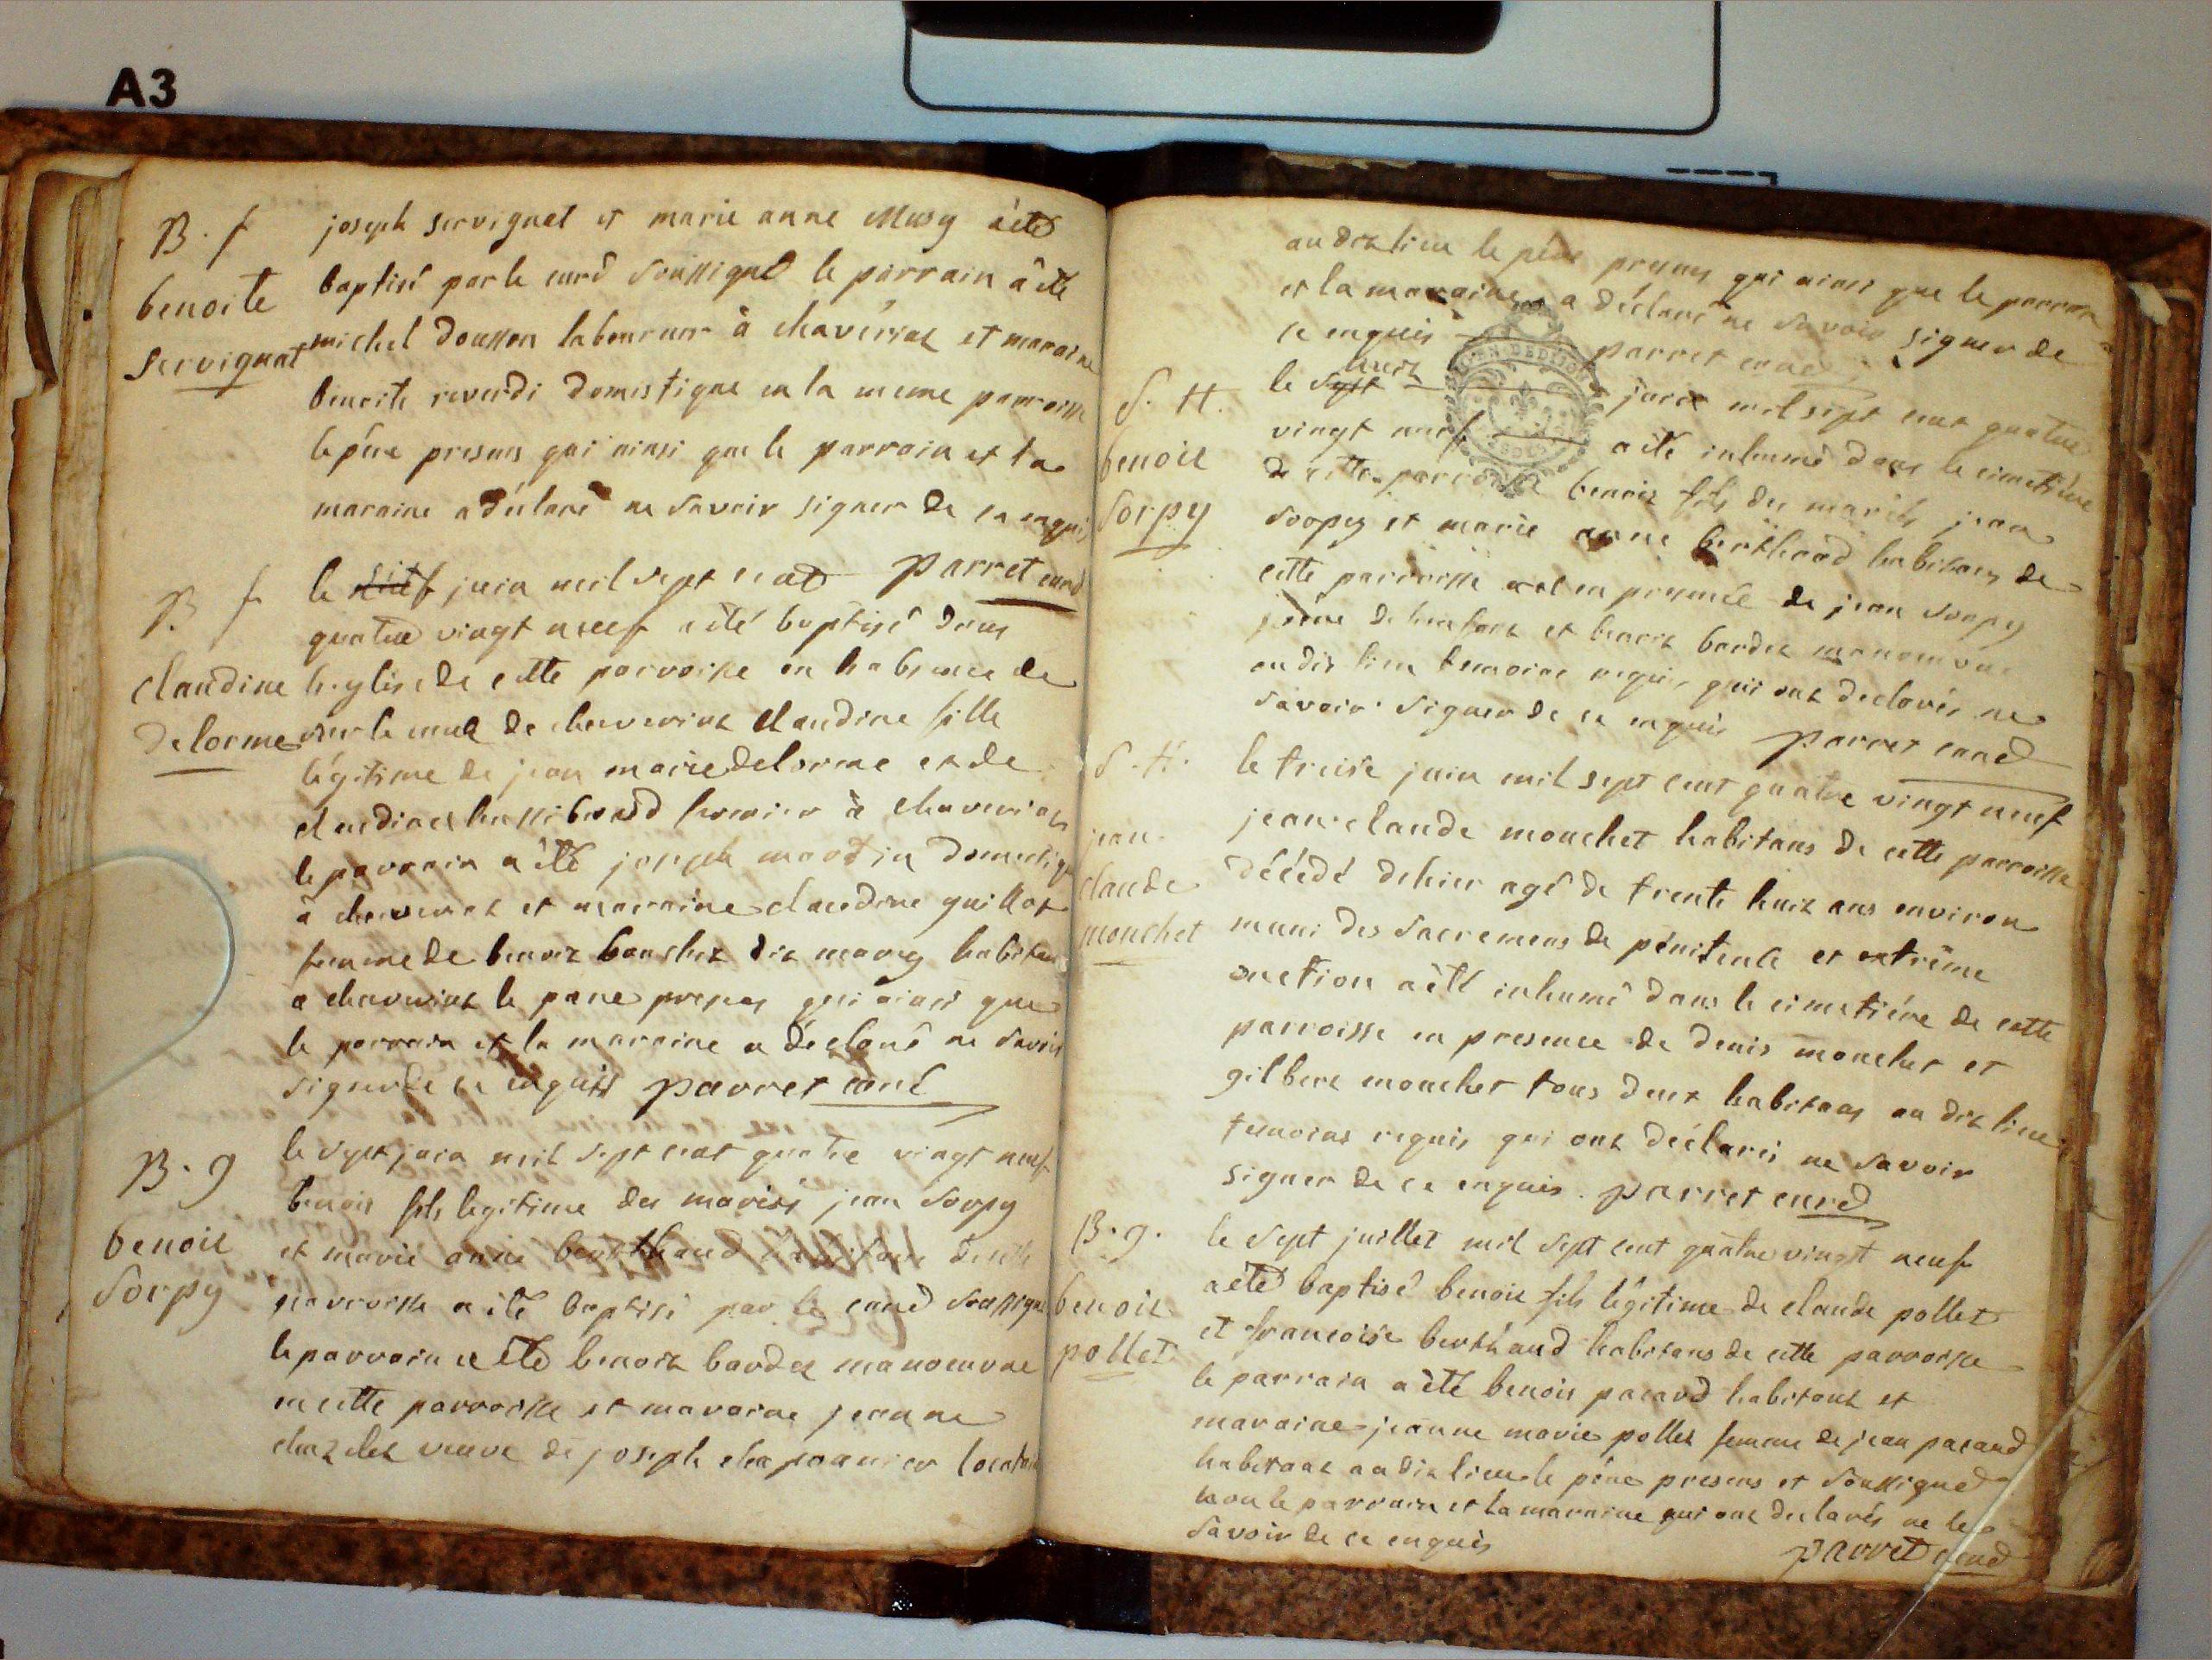 A3
B. f
benoite
servignat
joseph servignat et marie anne Musy a été
baptisé par le curé soussigné le parrain a été
michel dousson laboureur à chavériat et maraine
benoite reverdi domestique en la meme parroisse
le père presens qui ainsi que le parrain et la
maraine a déclaré ne savoir signer de ce enquis
parret curé
B. f
claudine
delorme
le juin mil sept cent
quatre vingt neuf a été baptisé dans
l'eglise de cette parroisse en l'absence de
le curé de chaveriat claudine fille
légitime de jean marie delorme et de
claudine à chaveriat
le parrain a été joseph domestique
à chaveriat et maraine claudine guillot
femme de benoit bouchet dit habitans
a chaveriat le pere presens qui ainsi que
le parrain et la maraine a déclaré ne savoir
signer de ce enquis parret curé
B. g
benoit
sorpy
le sept juin mil sept cent quatre vingt neuf
benoit fils legitime des mariés jean sorpy
et marie anne berthaud habitans de cette
parroisse a été baptisé par le curé soussigné
le parrain a été benoit bardet manoeuvre
en cette parroisse et maraine jeanne
chazelet veuve de joseph locataire
au dit lieu le père presens qui ainsi que le parrain
et la maraine a déclaré ne savoir signer de
ce enquis parret curé
S. H.
benoit
sorpy
huit
le sept juin mil sept cent quatre
vingt neuf a été inhumé dans le cimetière
de cette parroisse benoit fils des mariés jean
sorpy et marie anne berthaud habitans de
cette parroisse en presence de jean sorpy
père de l'enfant et benoit bardet manoeuvre
au dit lieu temoins requis qui ont declarés ne
savoir signer de ce enquis parret curé
S. H.
jean
claude
mouchet
le treise juin mil sept cent quatre vingt neuf
jean claude mouchet habitans de cette parroisse
décédé dehier agé de trente huit ans environ
muni des sacremens de pénitence et extrême
onction a été inhumé dans le cimetière de cette
parroisse en presence de denis mouchet et
gilbert mouchet tous deux habitans au dit lieu
temoins requis qui ont déclarés ne savoir
signer de ce enquis. parret curé
B. g.
benoit
pollet
le sept juillet mil sept cent quatre vingt neuf
a été baptisé benoit fils légitime de claude pollet
et francoise berthaud habitans de cette parroisse
le parrain a été benoit pacaud habitant et
maraine jeanne marie pollet femme de jean pacaud
habitans au dit lieu le père presens et soussigné
non le parrain et la maraine qui ont declarés ne le
savoir de ce enquis
parret curé